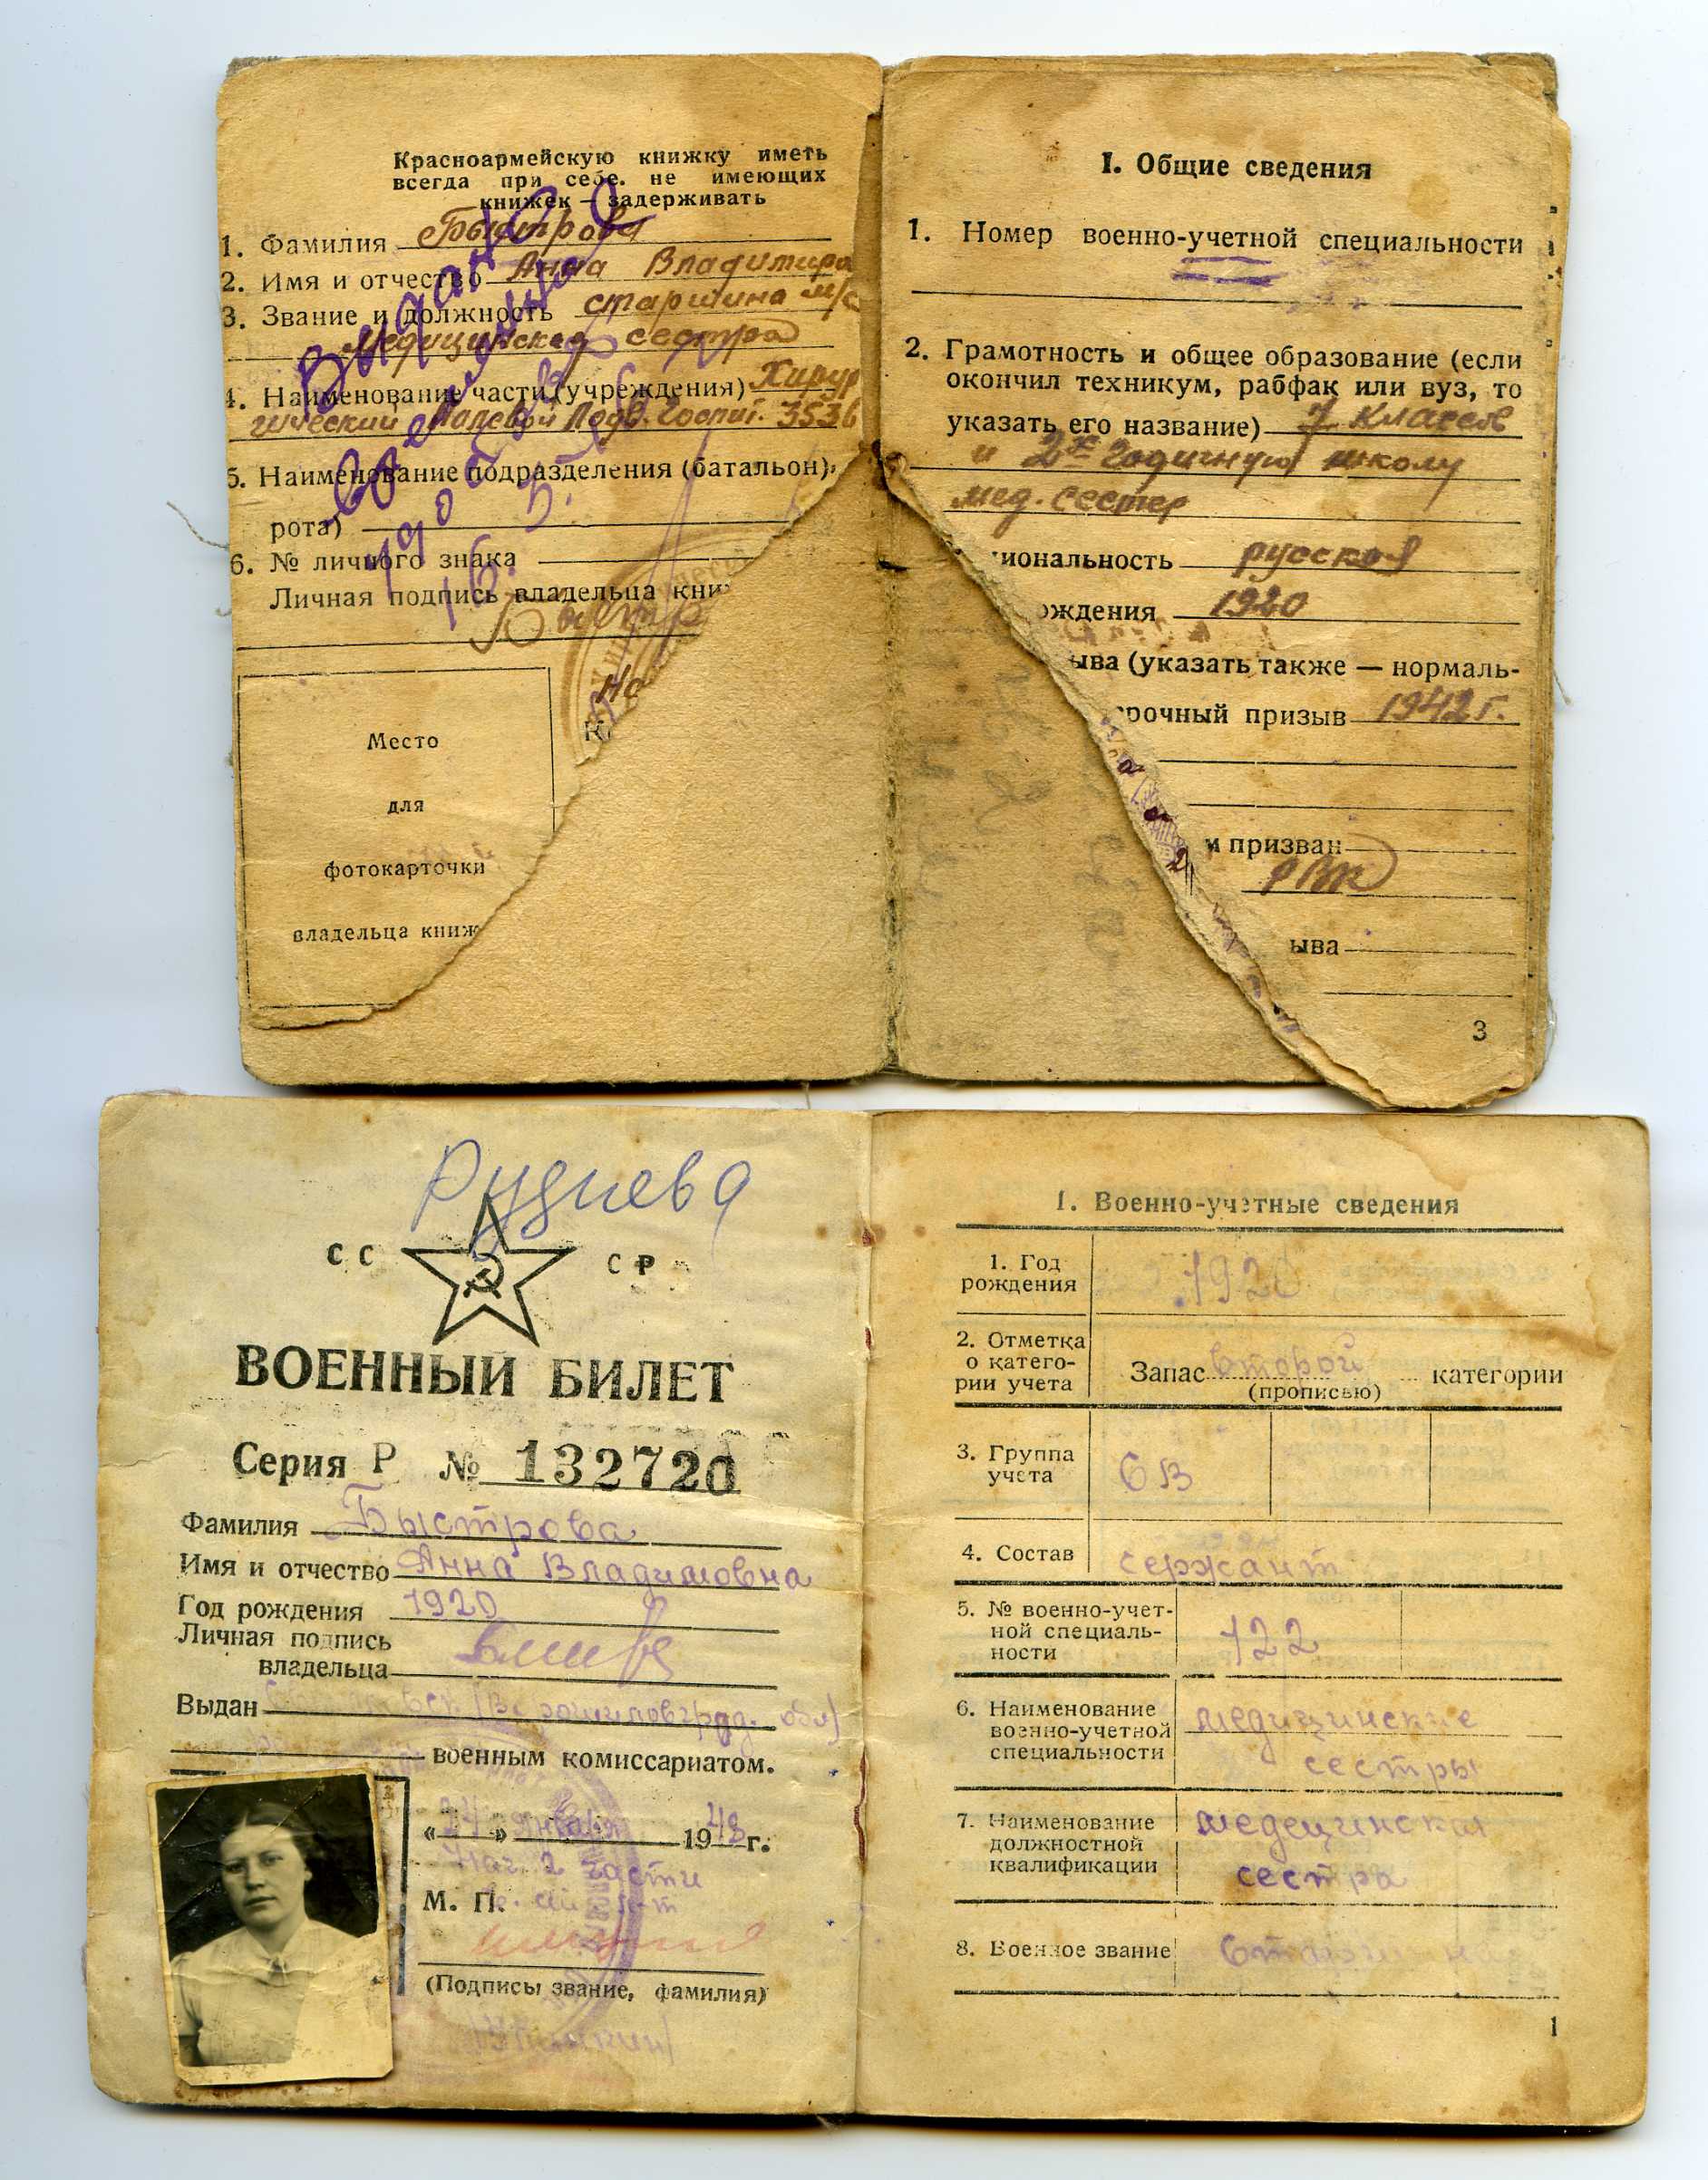 Красноармейскую книжку иметь
всегда при себе. не имеющих
книжек — задерживать
1. Фамилия Быстрова
2. Имя и отчество Анна Владимиро
3. Звание и должность старшина м/с
Медицинская сестра
4. Наименование части (учреждения) Хирур
гический Полевой Подв. Госпит. 3536
5. Наименование подразделения (батальон,
рота)
6. № личного знака
Личная подпись владельца кни
Выдано
временное
Место
для
фотокарточки
владельца книж
I. Общие сведения
1. Номер военно-учетной специальности
2. Грамотность и общее образование (если
окончил техникум, рабфак или вуз, то
указать его название) 7 классов
и 2х годичную школу
мед. сестер
иональность русская
ождения 1920
ыва (указать также — нормаль-
рочный призыв 1942 г.
м призван
РВК
ыва
3
Руднева
СС СР
ВОЕННЫЙ БИЛЕТ
Серия Р № 132720
Фамилия Быстрова
Имя и отчество Анна Владимовна
Год рождения 1920
Личная подпись
владельца
Выдан (Ворошиловград. обл)
военным комиссариатом.
«24» января 1948 г.
Нач. 2 части
М. П.
(Подпись, звание, фамилия)
I. Военно-учетные сведения
1. Год
рождения 1920
2. Отметка
о катего-
рии учета
Запас второй категории
(прописью)
3. Группа
учета 6В
4. Состав сержант
5. № военно-учет-
ной специаль-
ности 122
6. Наименование
военно-учетной
специальности
медицинские
сестры
7. Наименование
должностной
квалификации
медецинская
сестра
8. Военное звание
1